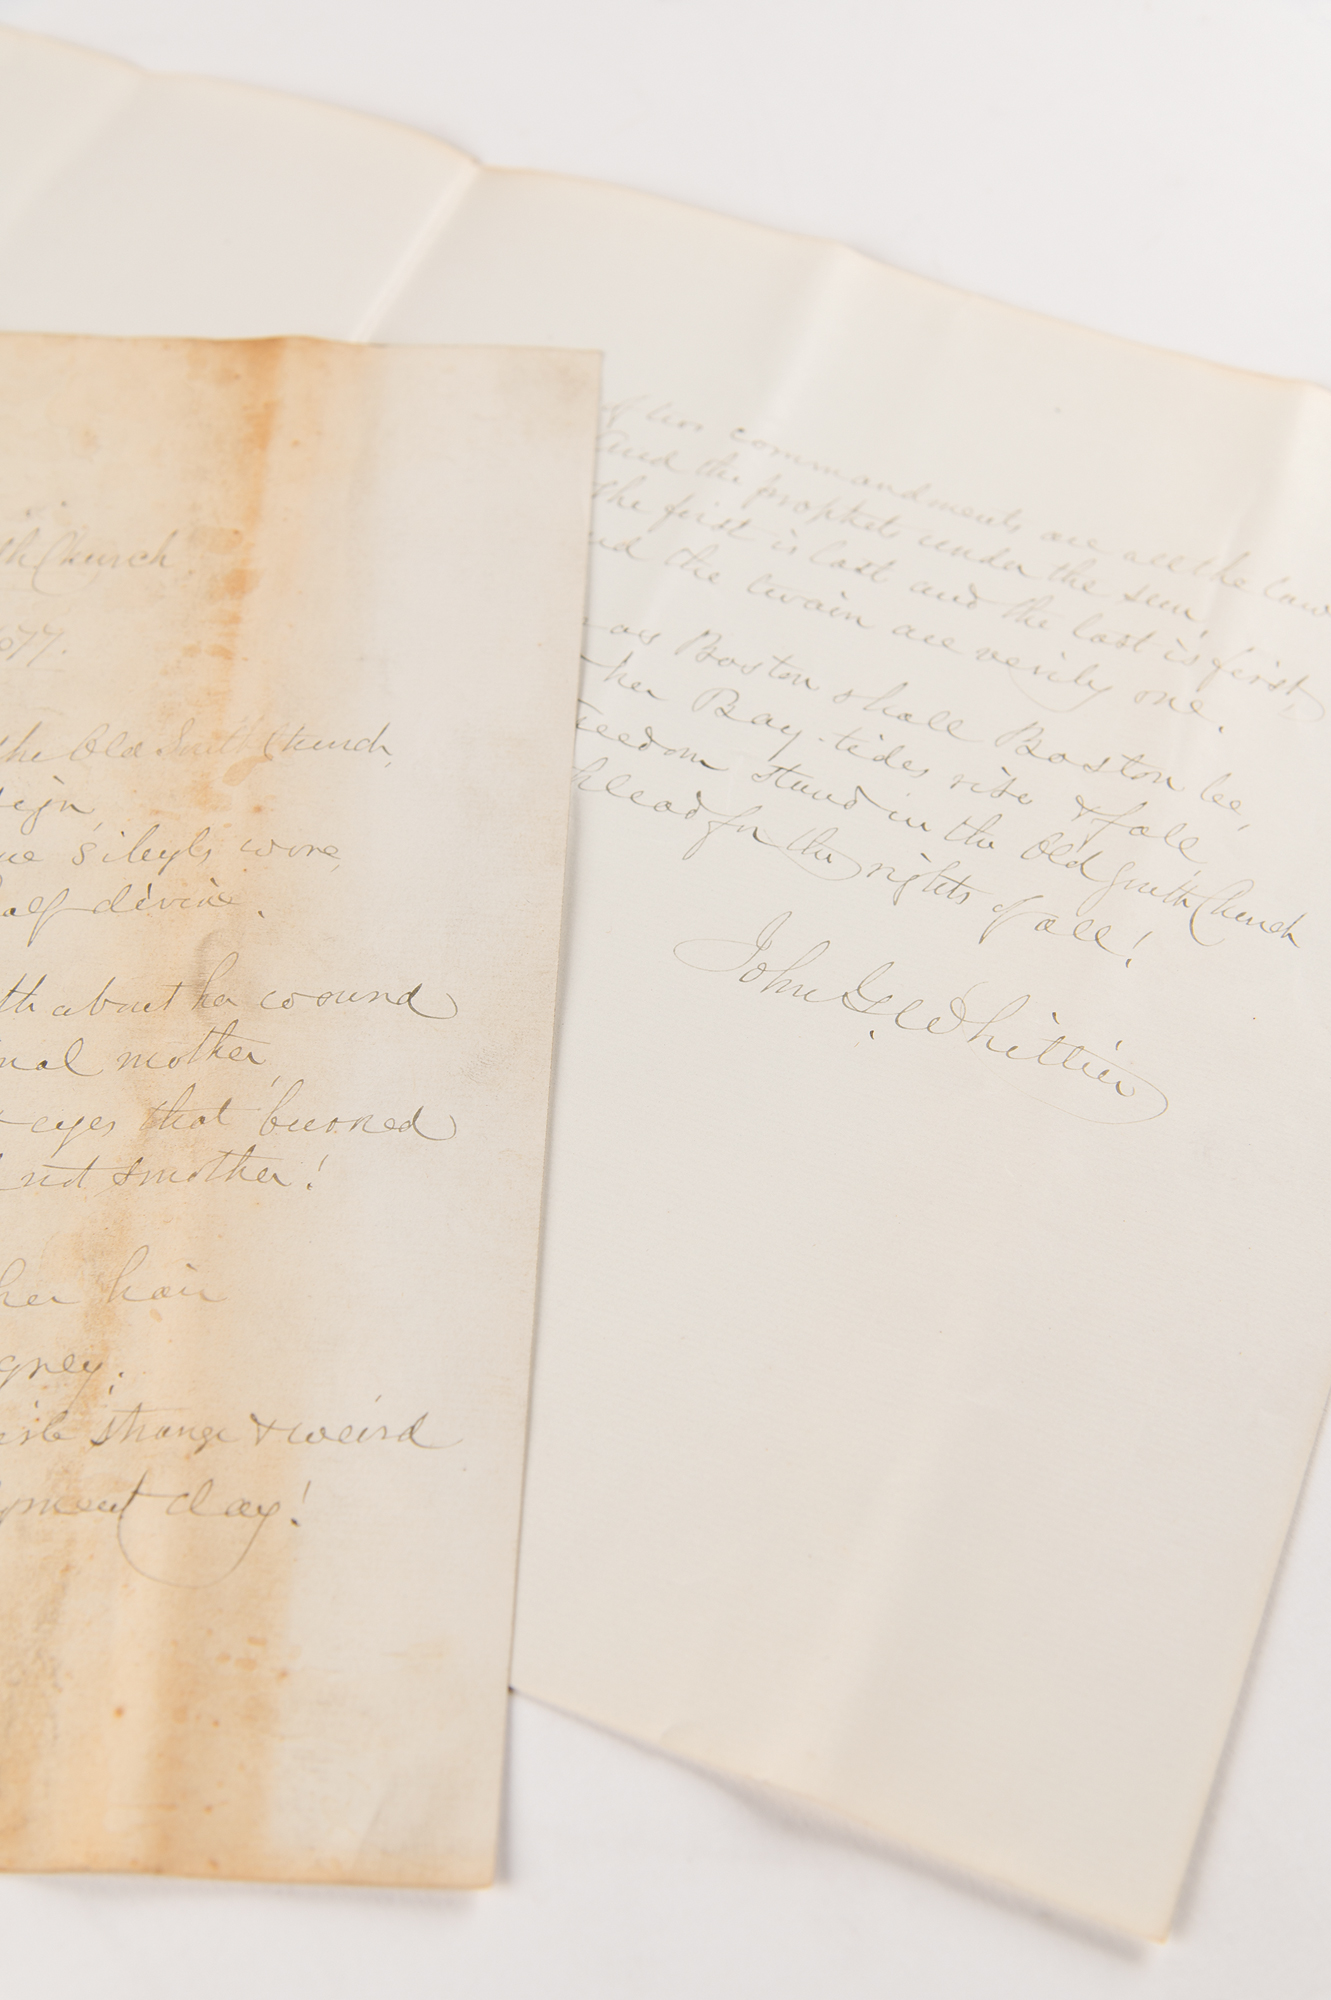 th Church
1677.
the Old South Church,
sign,
ue Sibyls wore,
half-divine.
th about her wound
nal mother,
eyes that burned
not smother!
her hair
grey;
strange & weird
gment day!
of two commandments are all the law
And the prophets under the sun,
the first is last and the last is first,
nd the twain are verily one.
as Boston shall Boston be,
her Bay-tides rise & fall,
reedom stand in the Old South Church
plead for the rights of all!
John G. Whittier